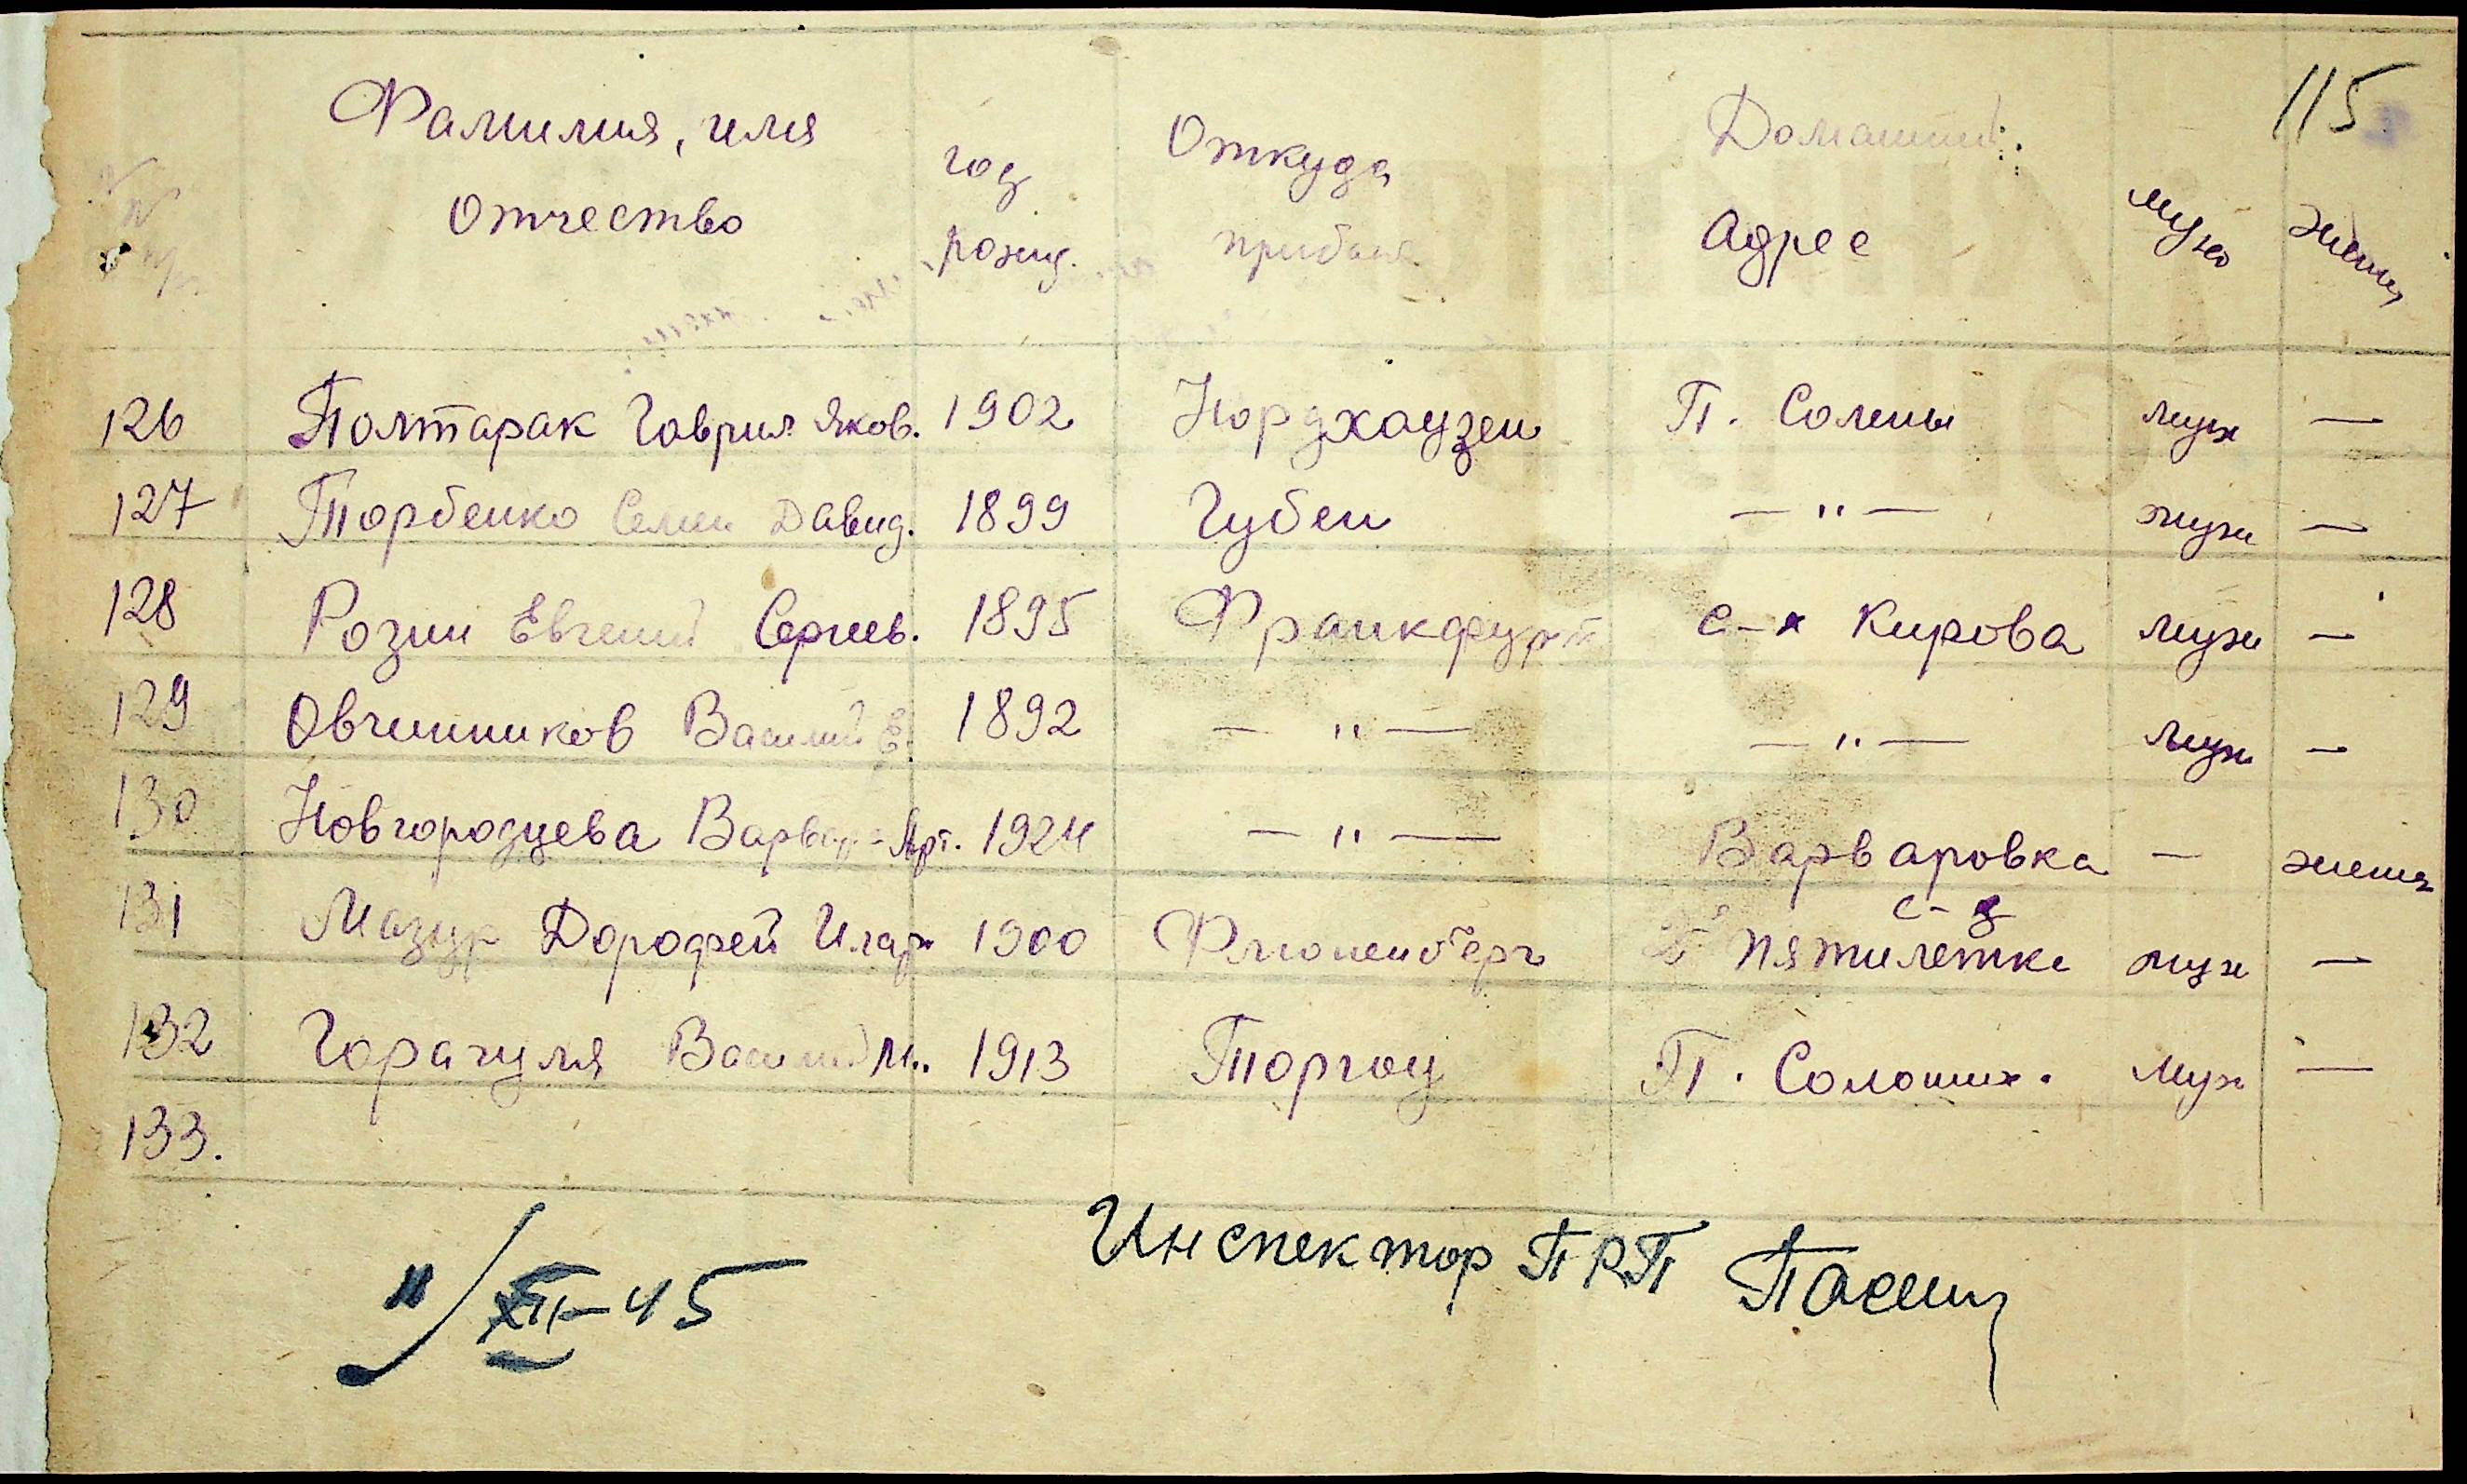 115
Фамилия, имя Отчество год рожд. Откуда прибыл Домашний Адрес муж женщ
126 Полтарак Гаврил Яков. 1902 Нордхаузен П. Солены муж —
127 Торбенко Семен Давид. 1899 Губен — " — муж —
128 Розин Евгений Сергеев. 1895 Франкфурт с-х Кирова муж —
129 Овчинников Василий Е. 1892 — " — — " — муж —
130 Новгородцева Варвара Арт. 1924 — " — Варваровка — женщ
131 Мазур Дорофей Илар 1900 Флюненберг с-з 2й пятилетке муж —
132 Горагуля Василий М. 1913 Торгоу П. Солоших. муж —
133.
11/XII-45 Инспектор ПРП